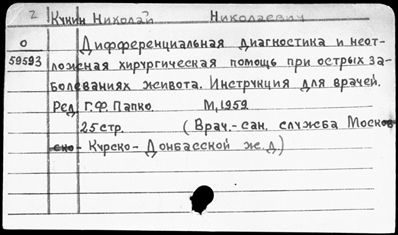 2 Кунин Николай Николаевич
0 Дифференциальная диагностика и неот-
59593 ложная хирургическая помощь при острых за-
болеваниях живота. Инструкция для врачей.
Ред Г.Ф. Папко. М, 1959.
25 стр. (Врач.-сан. служба Москов
ско- Курско- Донбасской ж.д.)